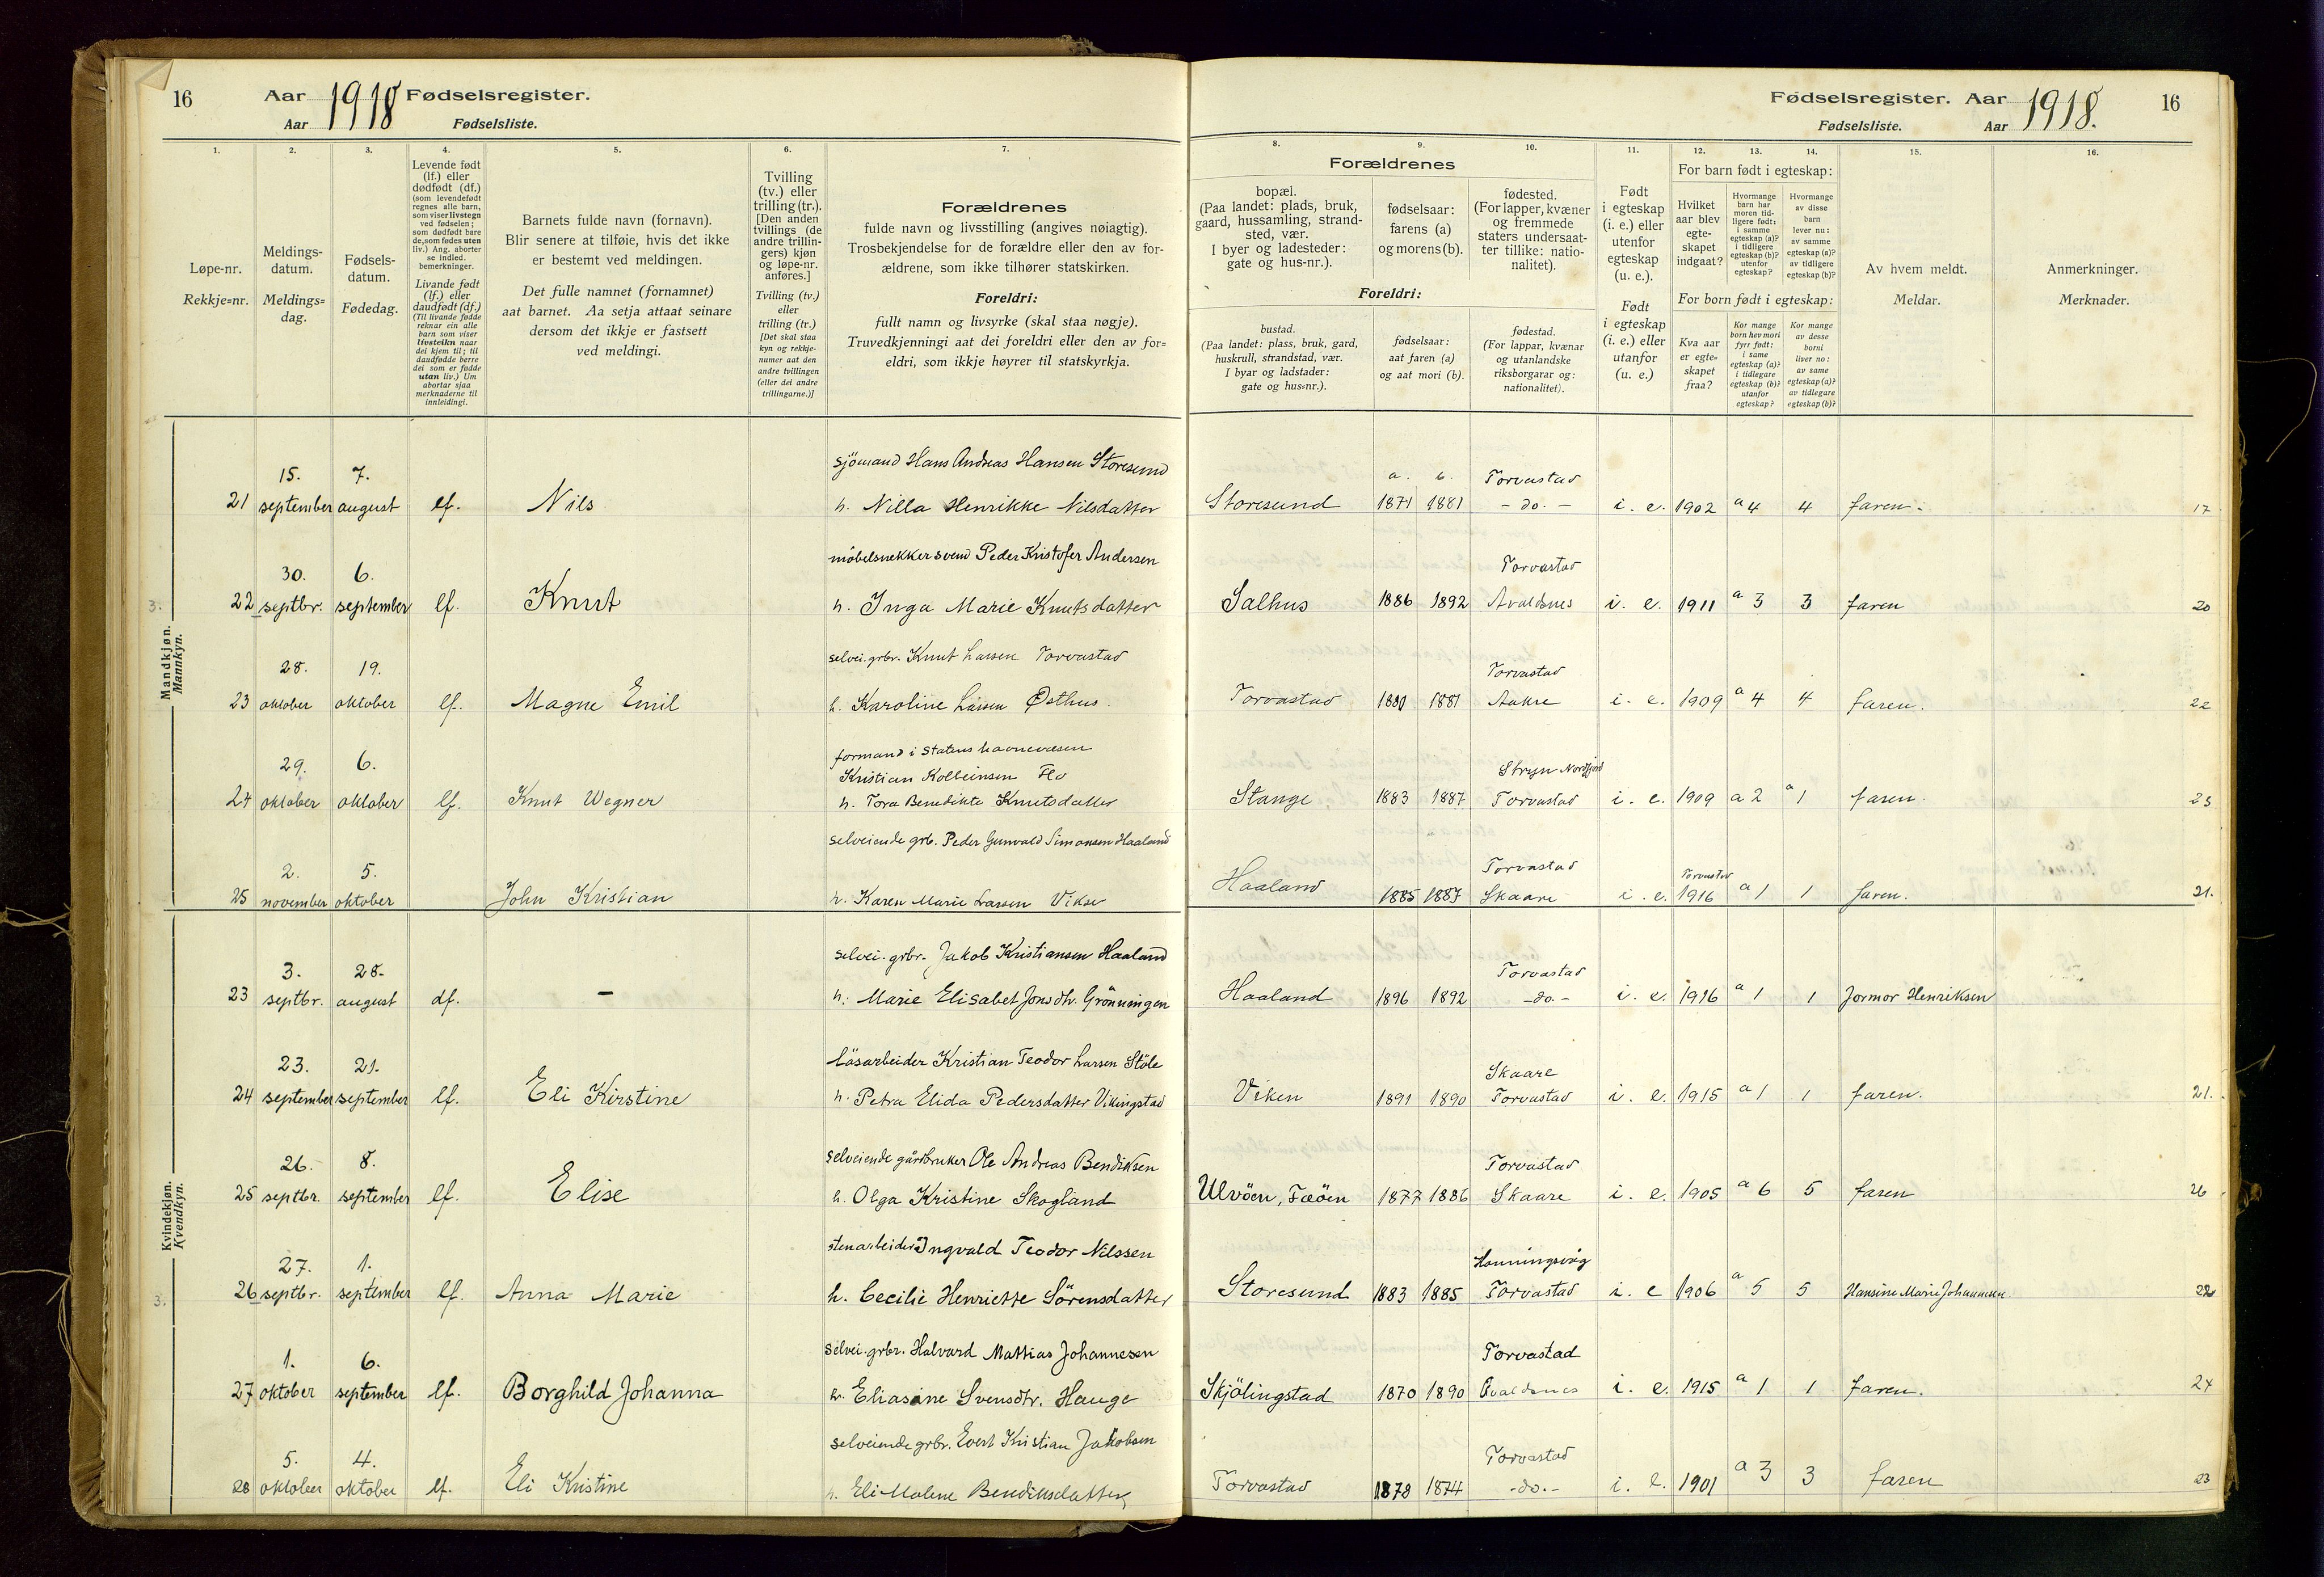 16 Aar 1918 Fødselsregister.
Aar Fødselsliste.
1. 2. 3. 4. 5. 6. 7.
Løpe-nr.
Rekkje=nr.
Meldings-
datum.
Meldings=
dag.
Fødsels-
datum.
Fødedag.
Levende født
(lf.) eller
dødfødt (df.)
(som levendefødt
regnes alle barn,
som viser livstegn
ved fødselen;
som dødfødt bare
de, som fødes uten
liv.) Ang. aborter
se indled.
bemerkninger.
Livande født
(lf.) eller
daudfødt (df.)
(Til livande fødde
reknar ein alle
barn som viser
livsteikn naar
dei kjem til; til
daudfødde berre
dei som er fødde
utan liv.) Um
abortar sjaa
merknaderne til
innleidingi.
Barnets fulde navn (fornavn).
Blir senere at tilføie, hvis det ikke
er bestemt ved meldingen.
Det fulle namnet (fornamnet)
aat barnet. Aa setja attaat seinare
dersom det ikkje er fastsett
ved meldingi.
Tvilling
(tv.) eller
trilling (tr.).
[Den anden
tvillings (de
andre trillin-
gers) kjøn
og løpe-nr.
anføres.]
Tvilling (tv.)
eller
trilling (tr.)
[Det skal staa
kyn og rekkje-
numer aat den
andre tvillingen
(eller dei andre
trillingarne.)]
Forældrenes
fulde navn og livsstilling (angives nøiagtig).
Trosbekjendelse for de forældre eller den av for-
ældrene, som ikke tilhører statskirken.
Foreldri:
fullt namn og livsyrke (skal staa nøgje).
Truvedkjenningi aat dei foreldri eller den av for=
eldri, som ikkje høyrer til statskyrkja.
Fødselsregister. Aar 1918. 16
Fødselsliste. Aar
8. 9. 10. 11. 12. 13. 14. 15. 16.
Forældrenes
bopæl.
(Paa landet: plads, bruk,
gaard, hussamling, strand-
sted, vær.
I byer og ladesteder:
gate og hus-nr.).
fødselsaar:
farens (a)
og morens (b).
fødested.
(For lapper, kvæner
og fremmede
staters undersaat-
ter tillike: natio-
nalitet).
Foreldri:
bustad.
(Paa landet: plass, bruk, gard,
huskrull, strandstad, vær.
I byar og ladstader:
gate og hus=nr.).
fødselsaar:
aat faren (a)
og aat mori (b).
fødestad.
(For lappar, kvænar
og utanlandske
riksborgarar og:
nationalitet).
Født
i egteskap
(i. e.) eller
utenfor
egteskap
(u. e.).
Født
i egteskap
(i. e.) eller
utanfor
(u. e.)
For barn født i egteskap:
Hvilket
aar blev
egte-
skapet
indgaat?
Hvormange
barn har
moren tid-
ligere født:
i samme
egteskap (a)?
i tidligere
egteskap (b)?
utenfor
egteskap?
Hvormange
av disse
barn
lever nu:
av samme
egteskap (a)?
av tidligere
egteskap (b)?
For born født i egteskap:
Kva aar
er egte=
skapet
fraa?
Kor mange
born hev mori
fyrr født:
i same
egteskap (a)?
i tidlegare
egteskap (b)?
utanfor
egteskap?
Kor mange
av desse
borni
liver no:
av same
egteskap (a)?
av tidlegare
egteskap (b)?
Av hvem meldt.
Meldar.
Anmerkninger.
Merknader.
Mandkjøn.
Mannkyn.
15. 7. sjömand Hans Andreas Hansen Storesund a. b. Torvastad
21 september august lf. Nils h. Nilla Henrikke Nilsdatter Storesund 1871 1881 - do. - i. e. 1902 a 4 4 faren. 17
30. 6. möbelsnekkersvend Peder Kristofer Andersen Torvastad
3. 22 septbr. september lf. Knut h. Inga Marie Knutsdatter Salhus 1886 1892 Avaldsnes i. e. 1911 a 3 3 faren 20
28. 19. selvei. grbr. Knut Larsen Torvastad Torvastad
23 oktober oktober lf. Magne Emil h. Karoline Larsen Østhus. Torvastad 1880 1881 Aakre i. e. 1909 a 4 4 faren. 22
29. 6. formand i Statens havnevæsen
Kristian Kolbeinsen Flo Stryn Nordfjord
24 oktober oktober lf. Knut Wegner h. Tora Benedikte Knutsdatter Stange 1883 1887 Torvastad i. e. 1909 a 2 a 1 faren. 23
2. 5. selveiende grb. Peder Gunvald Simonsen Haaland Torvastad Torvastad
25 november oktober John Kristian h. Karen Marie Larsen Vikse Haaland 1885 1887 Skaare i. e. 1916 a 1 1 faren. 21.
Kvindekjøn.
Kvendkyn.
3. 28. selvei. grbr. Jakob Kristiansen Haaland Torvastad
23 septbr. august df. - h. Marie Elisabet Jonsdtr. Grönningen Haaland 1896 1892 -do.- i. e. 1916 a 1 1 Jormor Henriksen
23. 21. lösarbeider Kristian Teodor Larsen Stöle Skaare
24 september september lf. Eli Kirstine h. Petra Elida Pedersdatter Vikingstad Viken 1891 1890 Torvastad i. e. 1915 a 1 1 faren. 21.
26. 8. selveiende gårdbruker Ole Andreas Bendiksen Torvastad
25 septbr. september lf. Elise h. Olga Kristine Skogland Ulvöen, Feöen 1877 1886 Skaare i. e. 1905 a 6 5 faren 26
27. 1. stenarbeider Ingvald Teodor Nilssen Honningsvåg
3. 26 septbr. september lf. Anna Marie h. Cecilie Henriette Sörensdatter Storesund 1883 1885 Torvastad i. e 1906 a 5 5 Hansine Marie Johannesen 22
1. 6. selvei. grbr. Halvard Mattias Johannesen Torvastad
27 oktober september lf. Borghild Johanna h. Eliasine Svensdtr. Hauge Skjölingstad 1870 1890 Avaldsnes i. e. 1915 a 1 1 faren. 24
5. 4. selveiende grbr. Evert Kristian Jakobsen Torvastad
28 oktober oktober lf. Eli Kristine h. Eli Malene Bendiksdatter Torvastad 1878 1874 -do.- i. e. 1901 a 3 3 faren 23